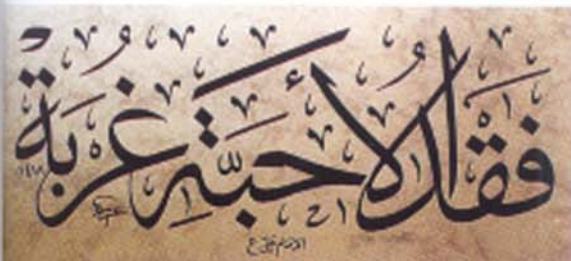 فَقْدُ الأَحِبَّةِ غُرْبَةٌ
الإمام علي ع